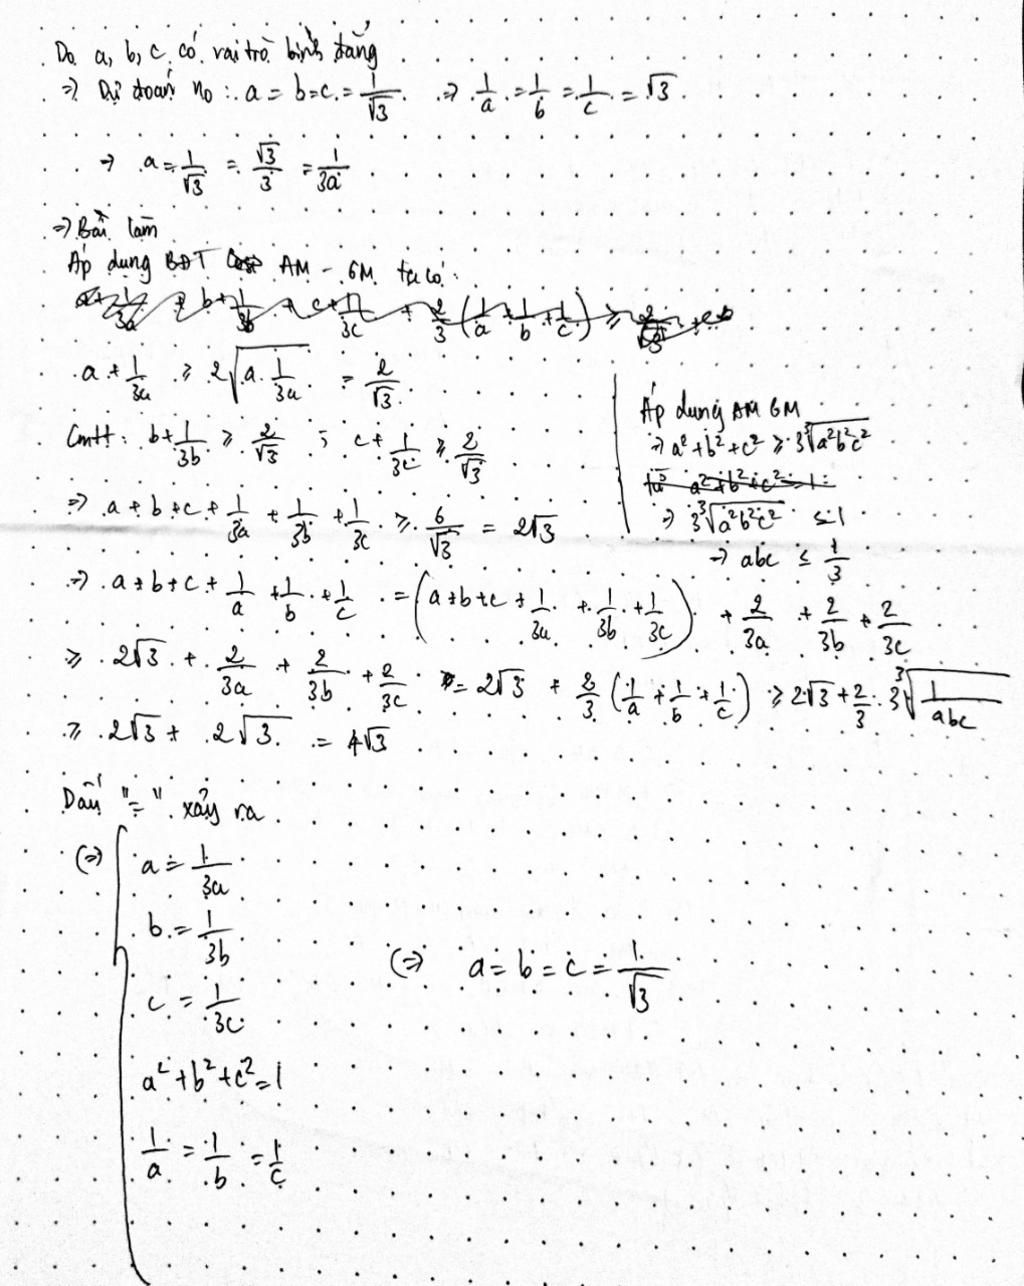 Do a, b, c có vai trò bình đẳng
=> Dự đoán no : a = b = c = 1/√3 => 1/a = 1/b = 1/c = √3
=> a = 1/√3 = √3/3 = 1/3a
=> Bài làm
Áp dụng BĐT AM - GM ta có :
a + 1/3a + b + 1/3b + c + 1/3c + 2/3 (1/a + 1/b + 1/c) ≥ 2/√3
a + 1/3a ≥ 2√(a . 1/3a) = 2/√3
Cmtt : b + 1/3b ≥ 2/√3 ; c + 1/3c ≥ 2/√3
=> a + b + c + 1/3a + 1/3b + 1/3c ≥ 6/√3 = 2√3
Áp dụng AM GM
=> a² + b² + c² ≥ 3∛(a²b²c²)
a² + b² + c² = 1
=> 3∛(a²b²c²) ≤ 1
=> abc ≤ 1/3
=> a + b + c + 1/a + 1/b + 1/c = (a + b + c + 1/3a + 1/3b + 1/3c) + 2/3a + 2/3b + 2/3c
≥ 2√3 + 2/3a + 2/3b + 2/3c = 2√3 + 2/3 (1/a + 1/b + 1/c) ≥ 2√3 + 2/3 . 3∛(1/abc)
≥ 2√3 + 2√3 = 4√3
Dấu "=" xảy ra
(=>) a = 1/3a
b = 1/3b
c = 1/3c
a² + b² + c² = 1
1/a = 1/b = 1/c
(=>) a = b = c = 1/√3